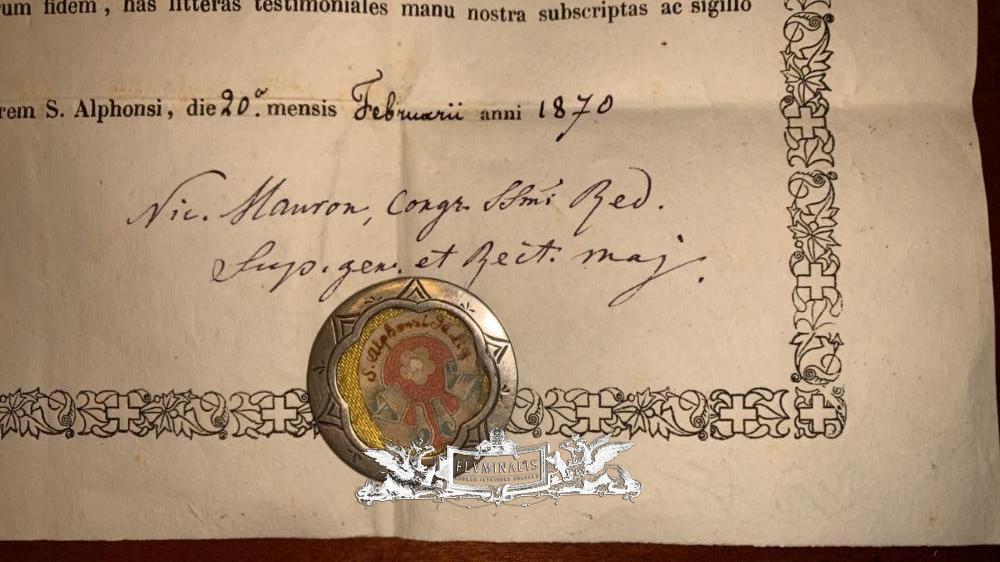 rum fidem, has litteras testimoniales manu nostra subscriptas ac sigillo
rem S. Alphonsi, die 20.ª mensis Februarii anni 1870
Nic. Mauron, Congr. SSmi Red.
Sup. gen. et Rect. maj.
S. Alphonsi de Lig
FLVMINALIS